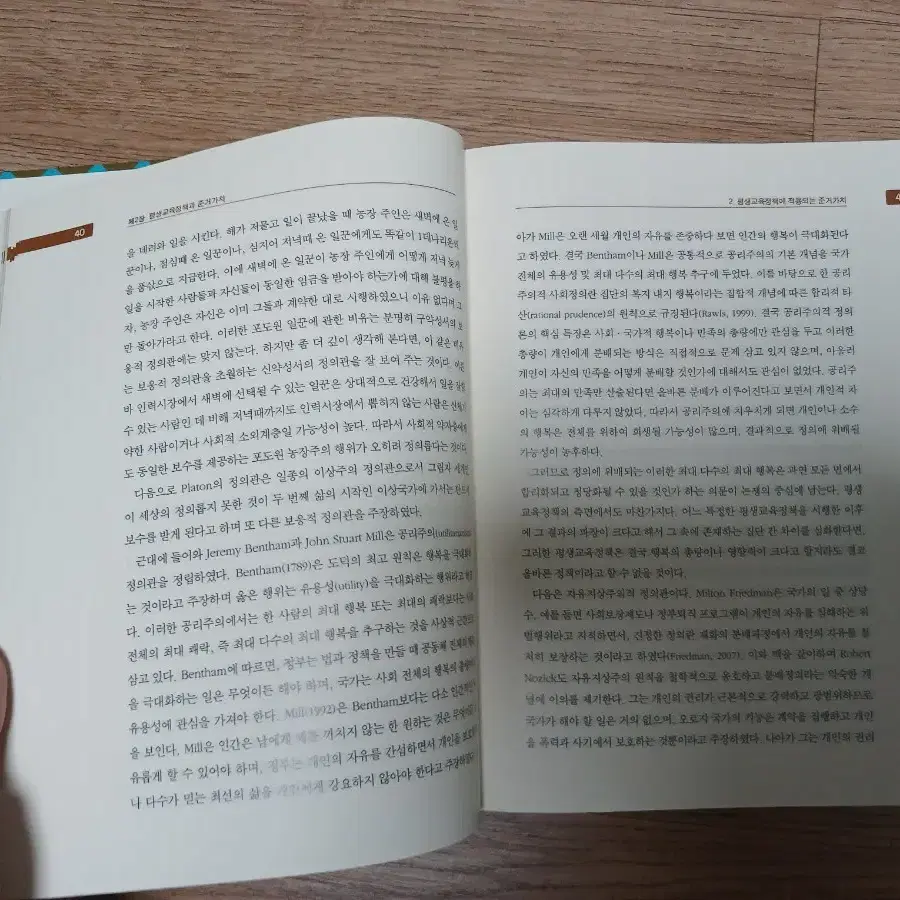 40
제2장 평생교육정책과 준거가치
을 데려와 일을 시킨다. 해가 저물고 일이 끝났을 때 농장 주인은 새벽에 온 일
꾼이나, 점심때 온 일꾼이나, 심지어 저녁때 온 일꾼에게도 똑같이 1데나리온의
을 품삯으로 지급한다. 이에 새벽에 온 일꾼이 농장 주인에게 어떻게 저녁 늦게
일을 시작한 사람들과 자신들이 동일한 임금을 받아야 하는가에 대해 불평을 하
자, 농장 주인은 자신은 이미 그들과 계약한 대로 시행하였으니 이유 없다며 그
만 돌아가라고 한다. 이러한 포도원 일꾼에 관한 비유는 분명히 구약성서의 보
응적 정의관에는 맞지 않는다. 하지만 좀 더 깊이 생각해 본다면, 이 같은 비유
는 보응적 정의관을 초월하는 신약성서의 정의관을 잘 보여 주는 것이다. 이른
바 인력시장에서 새벽에 선택될 수 있는 일꾼은 상대적으로 건강해서 일을 잘할
수 있는 사람인 데 비해 저녁때까지도 인력시장에서 뽑히지 않는 사람은 신체가
약한 사람이거나 사회적 소외계층일 가능성이 높다. 따라서 사회적 약자층에게
도 동일한 보수를 제공하는 포도원 농장주의 행위가 오히려 정의롭다는 것이다.
다음으로 Platon의 정의관은 일종의 이상주의 정의관으로서 그림자 세계인
이 세상의 정의롭지 못한 것이 두 번째 삶의 시작인 이상국가에 가서는 반드시
보수를 받게 된다고 하며 또 다른 보응적 정의관을 주장하였다.
근대에 들어와 Jeremy Bentham과 John Stuart Mill은 공리주의(utilitarianism)
정의관을 정립하였다. Bentham(1789)은 도덕의 최고 원칙은 행복을 극대화하
는 것이라고 주장하며 옳은 행위는 유용성(utility)을 극대화하는 행위라고 하였
다. 이러한 공리주의에서는 한 사람의 최대 행복 또는 최대의 쾌락보다는 사회
전체의 최대 쾌락, 즉 최대 다수의 최대 행복을 추구하는 것을 사상적 근간으로
삼고 있다. Bentham에 따르면, 정부는 법과 정책을 만들 때 공동체 전체의 행복
을 극대화하는 일은 무엇이든 해야 하며, 국가는 사회 전체의 행복의 총량이
유용성에 관심을 가져야 한다. Mill(1992)은 Bentham보다는 다소 인간적인
을 보인다. Mill은 인간은 남에게 해를 끼치지 않는 한 원하는 것은 무엇이든 자
유롭게 할 수 있어야 하며, 정부는 개인의 자유를 간섭하면서 개인을 보호하거
나 다수가 믿는 최선의 삶을 개인에게 강요하지 않아야 한다고 주장하였다.
2. 평생교육정책에 적용되는 준거가치
아가 Mill은 오랜 세월 개인의 자유를 존중하다 보면 인간의 행복이 극대화된다
고 하였다. 결국 Bentham이나 Mill은 공통적으로 공리주의의 기본 개념을 국가
전체의 유용성 및 최대 다수의 최대 행복 추구에 두었다. 이를 바탕으로 한 공리
주의적 사회정의란 집단의 복지 내지 행복이라는 집합적 개념에 따른 합리적 타
산(rational prudence)의 원칙으로 규정된다(Rawls, 1999). 결국 공리주의적 정의
론의 핵심 특징은 사회·국가적 행복이나 만족의 총량에만 관심을 두고 이러한
총량이 개인에게 분배되는 방식은 직접적으로 문제 삼고 있지 않으며, 아울러
개인이 자신의 만족을 어떻게 분배할 것인가에 대해서도 관심이 없었다. 공리주
의는 최대의 만족만 산출된다면 올바른 분배가 이루어진다고 보면서 개인적 차
이는 심각하게 다루지 않았다. 따라서 공리주의에 치우치게 되면 개인이나 소수
의 행복은 전체를 위하여 희생될 가능성이 많으며, 결과적으로 정의에 위배될
가능성이 농후하다.
그러므로 정의에 위배되는 이러한 최대 다수의 최대 행복은 과연 모든 면에서
합리화되고 정당화될 수 있을 것인가 하는 의문이 논쟁의 중심에 남는다. 평생
교육정책의 측면에서도 마찬가지다. 어느 특정한 평생교육정책을 시행한 이후
에 그 결과의 파장이 크다고 해서 그 속에 존재하는 집단 간 차이를 심화한다면,
그러한 평생교육정책은 결국 행복의 총량이나 영향력이 크다고 할지라도 결코
올바른 정책이라고 할 수 없을 것이다.
다음은 자유지상주의적 정의관이다. Milton Friedman은 국가의 일 중 상당
수, 예를 들면 사회보장제도나 정부퇴직 프로그램이 개인의 자유를 침해하는 위
법행위라고 지적하면서, 진정한 정의란 재화의 분배과정에서 개인의 자유를 철
저히 보장하는 것이라고 하였다(Friedman, 2007). 이와 맥을 같이하여 Robert
Nozick도 자유지상주의 원칙을 철학적으로 옹호하고 분배정의라는 익숙한 개
념에 이의를 제기한다. 그는 개인의 권리가 근본적으로 강력하고 광범위하므로
국가가 해야 할 일은 거의 없으며, 오로지 국가의 기능은 계약을 집행하고 개인
을 폭력과 사기에서 보호하는 것뿐이라고 주장하였다. 나아가 그는 개인의 권리